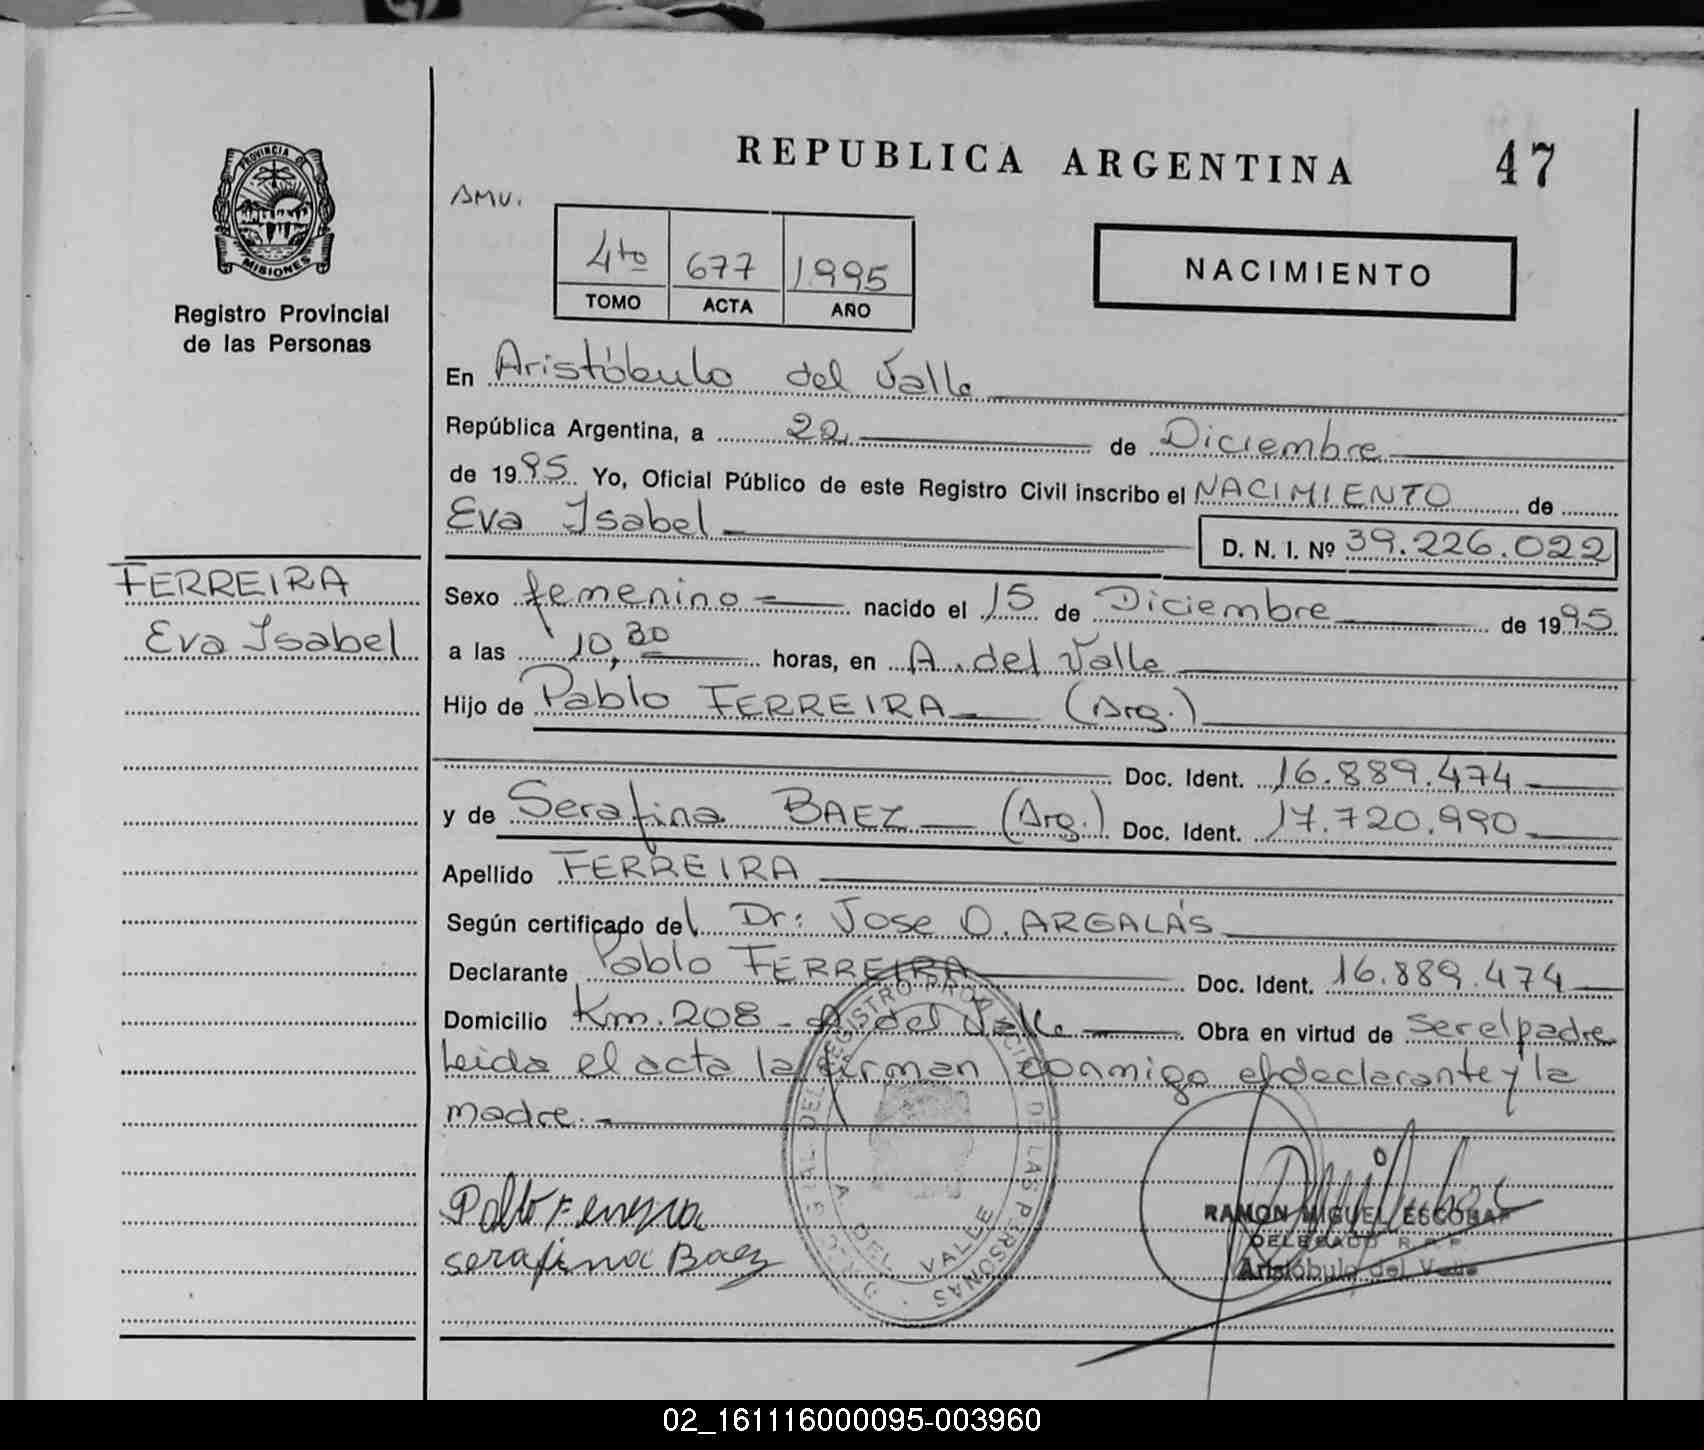 REPUBLICA ARGENTINA 47
PROVINCIA DE
MISIONES
Registro Provincial
de las Personas
AMU.
4to 677 1995
TOMO ACTA AÑO
NACIMIENTO
En Aristóbulo del Valle
República Argentina, a 22 de Diciembre
de 1995 Yo, Oficial Público de este Registro Civil inscribo el NACIMIENTO de
Eva Isabel D. N. I. Nº 39.226.022
FERREIRA
Eva Isabel
Sexo femenino nacido el 15 de Diciembre de 1995
a las 10,30 horas, en A. del Valle
Hijo de Pablo FERREIRA (Arg.)
Doc. Ident. 16.889.474
y de Serafina BAEZ (Arg.) Doc. Ident. 17.720.990
Apellido FERREIRA
Según certificado del Dr: Jose O. ARGALÁS
Declarante Pablo FERREIRA Doc. Ident. 16.889.474
Domicilio Km. 208 - A. del Valle Obra en virtud de ser el padre
Leida el acta la firman conmigo el declarante y la
madre.-
DEL REGISTRO PROVINCIAL DE LAS PERSONAS
A. DEL VALLE
Pablo Ferreyra
serafina Baez
RAMON MIGUEL ESCOBAR
DELEGADO R. P. P.
Aristóbulo del Valle
02_161116000095-003960